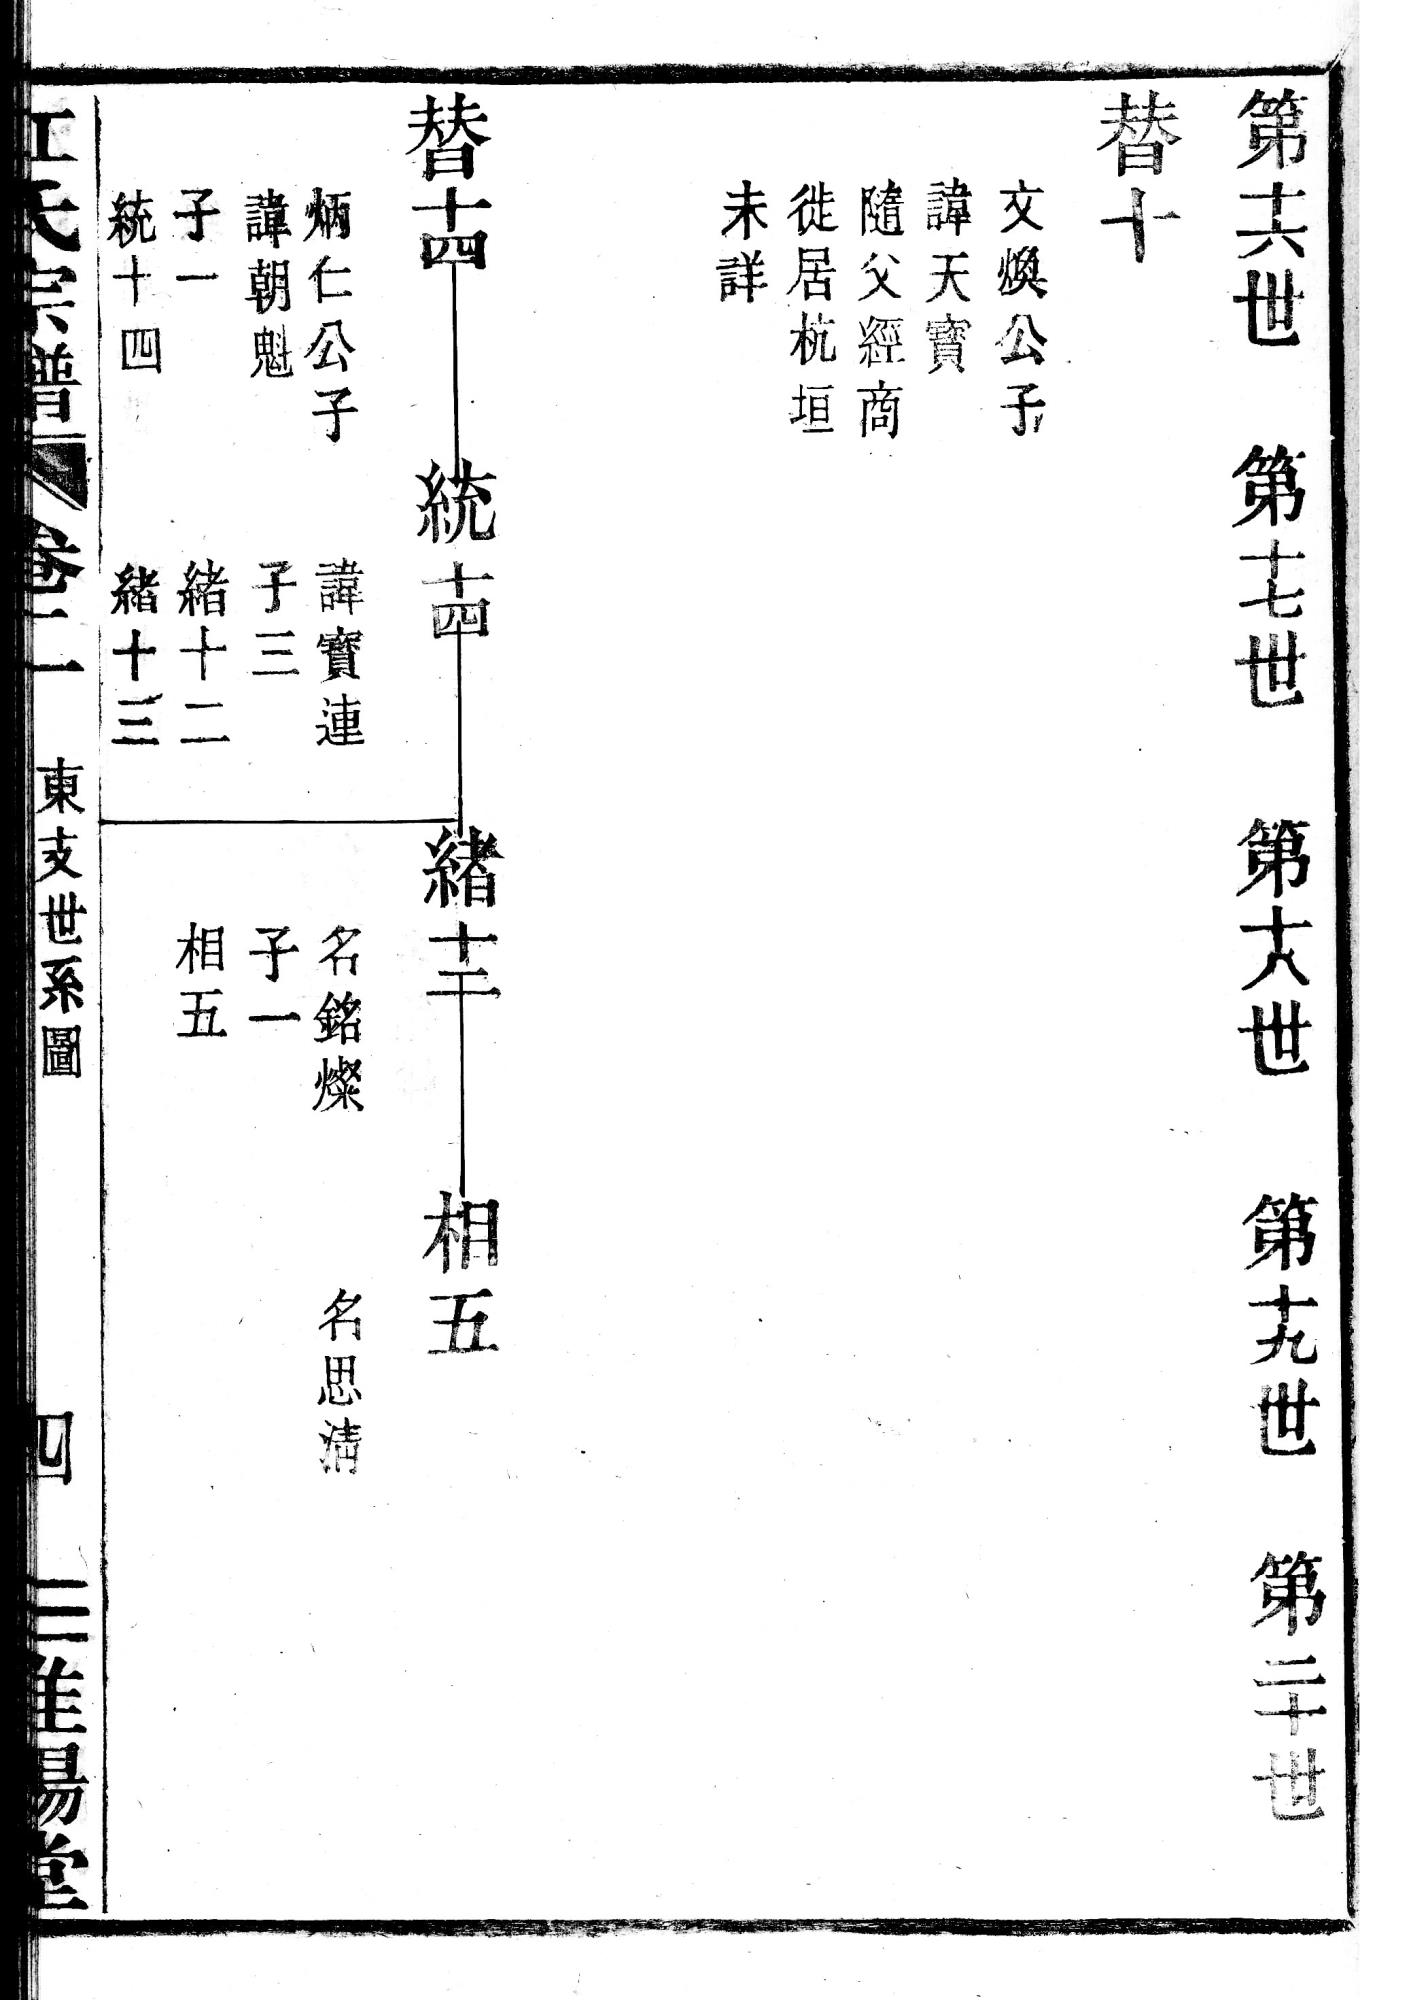 第十六世　第十七世　第十八世　第十九世　第二十世
替十
文煥公子
諱天寳
隨父經商
徙居杭垣
未詳
替十四　統十四　緒十二　相五
炳仁公子　諱寳連　名銘燦　名思清
諱朝魁　子三　子一
子一　緒十二　相五
統十四　緒十三
氏宗譜　卷二　東支世系圖　四　三　陽堂